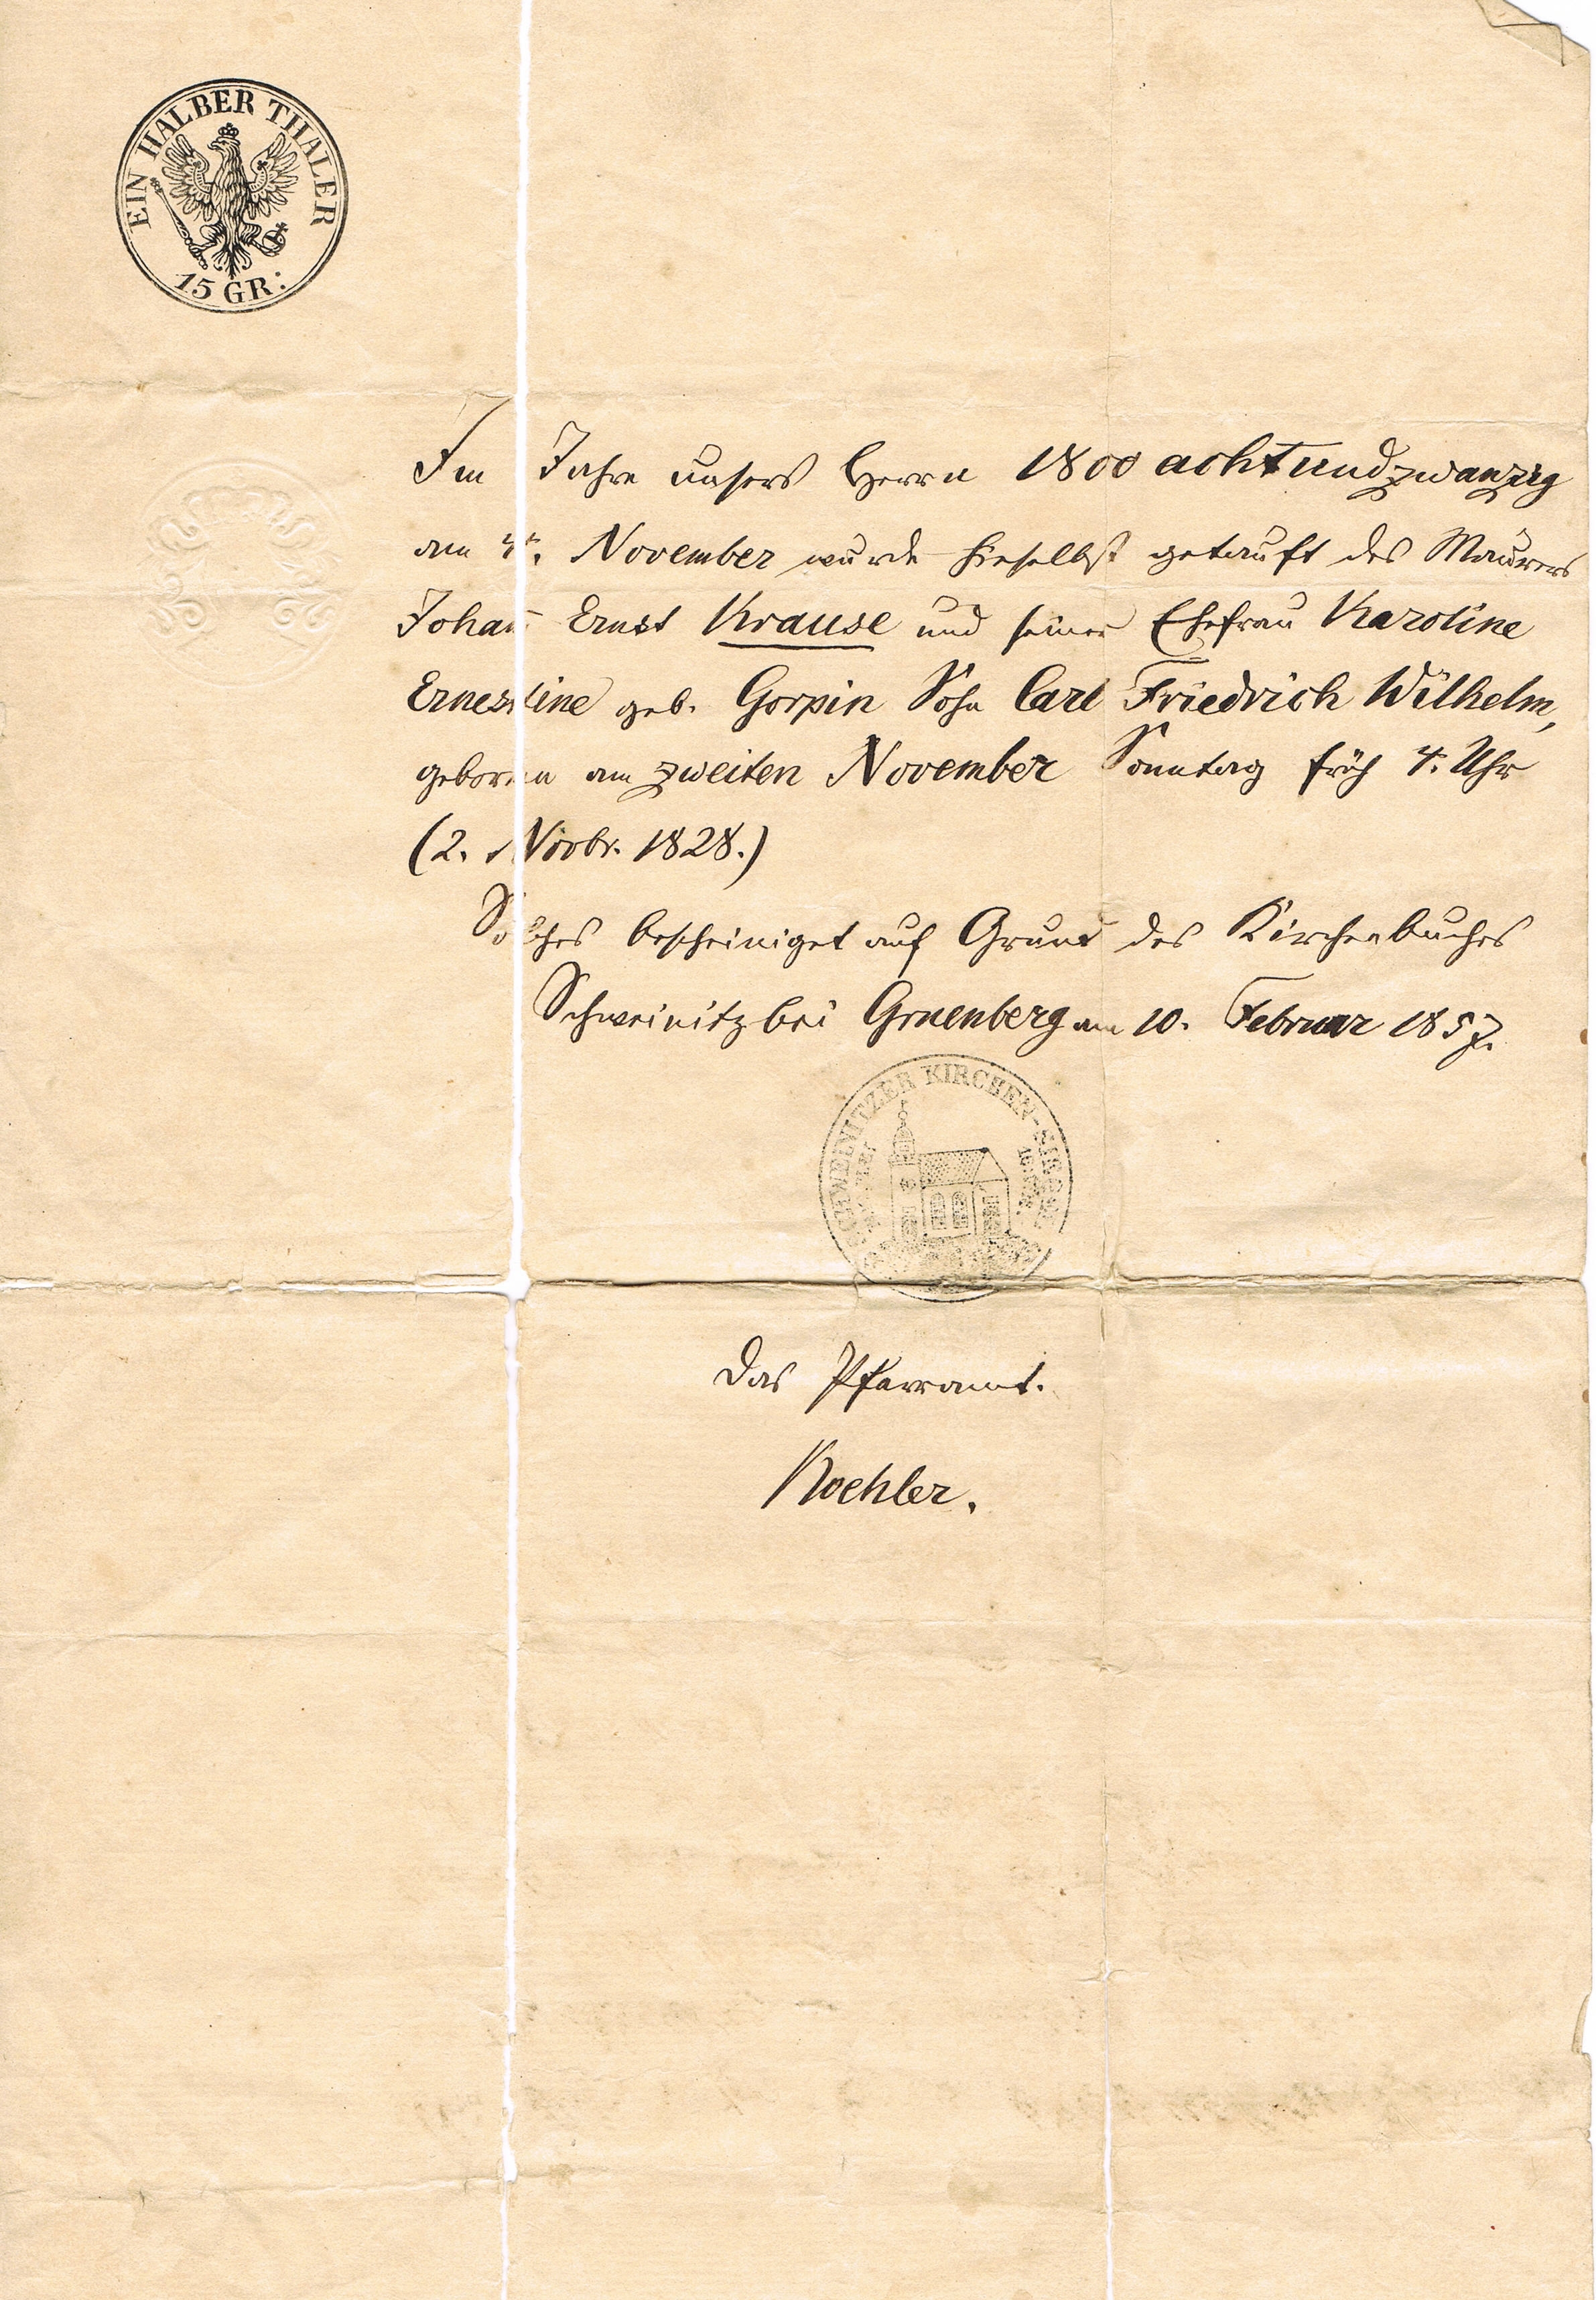 EIN HALBER THALER
15 GR:
Im Jahre unsers Herrn 1800 achtundzwanzig
am 4t. November wurde hieselbst getauft des Maurers
Johann Ernst Krause und seiner Ehefrau Karoline
Ernestine geb. Gorpin Sohn Carl Friedrich Wilhelm,
geboren am zweiten November Sonntag früh 4. Uhr
(2. Novbr. 1828.)
Solches bescheiniget auf Grund des Kirchenbuches
Schweinitz bei Gruenberg am 10. Februar 1857.
SCHWEINITZER KIRCHEN-SIEGEL
Das Pfarramt.
Koehler.